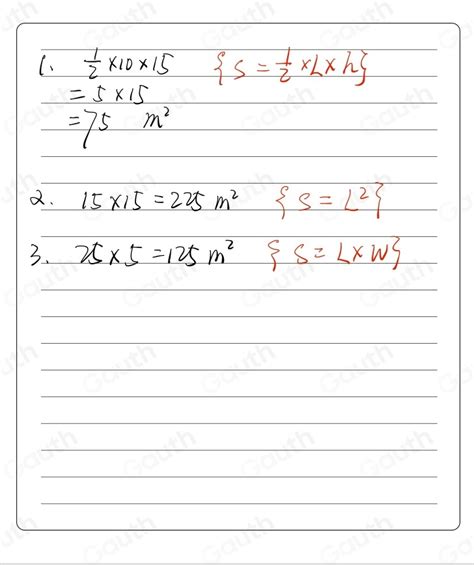 1. ½ × 10 × 15 {S = ½ × L × h}
= 5 × 15
= 75 m²
2. 15 × 15 = 225 m² {S = L²}
3. 25 × 5 = 125 m² {S = L × W}